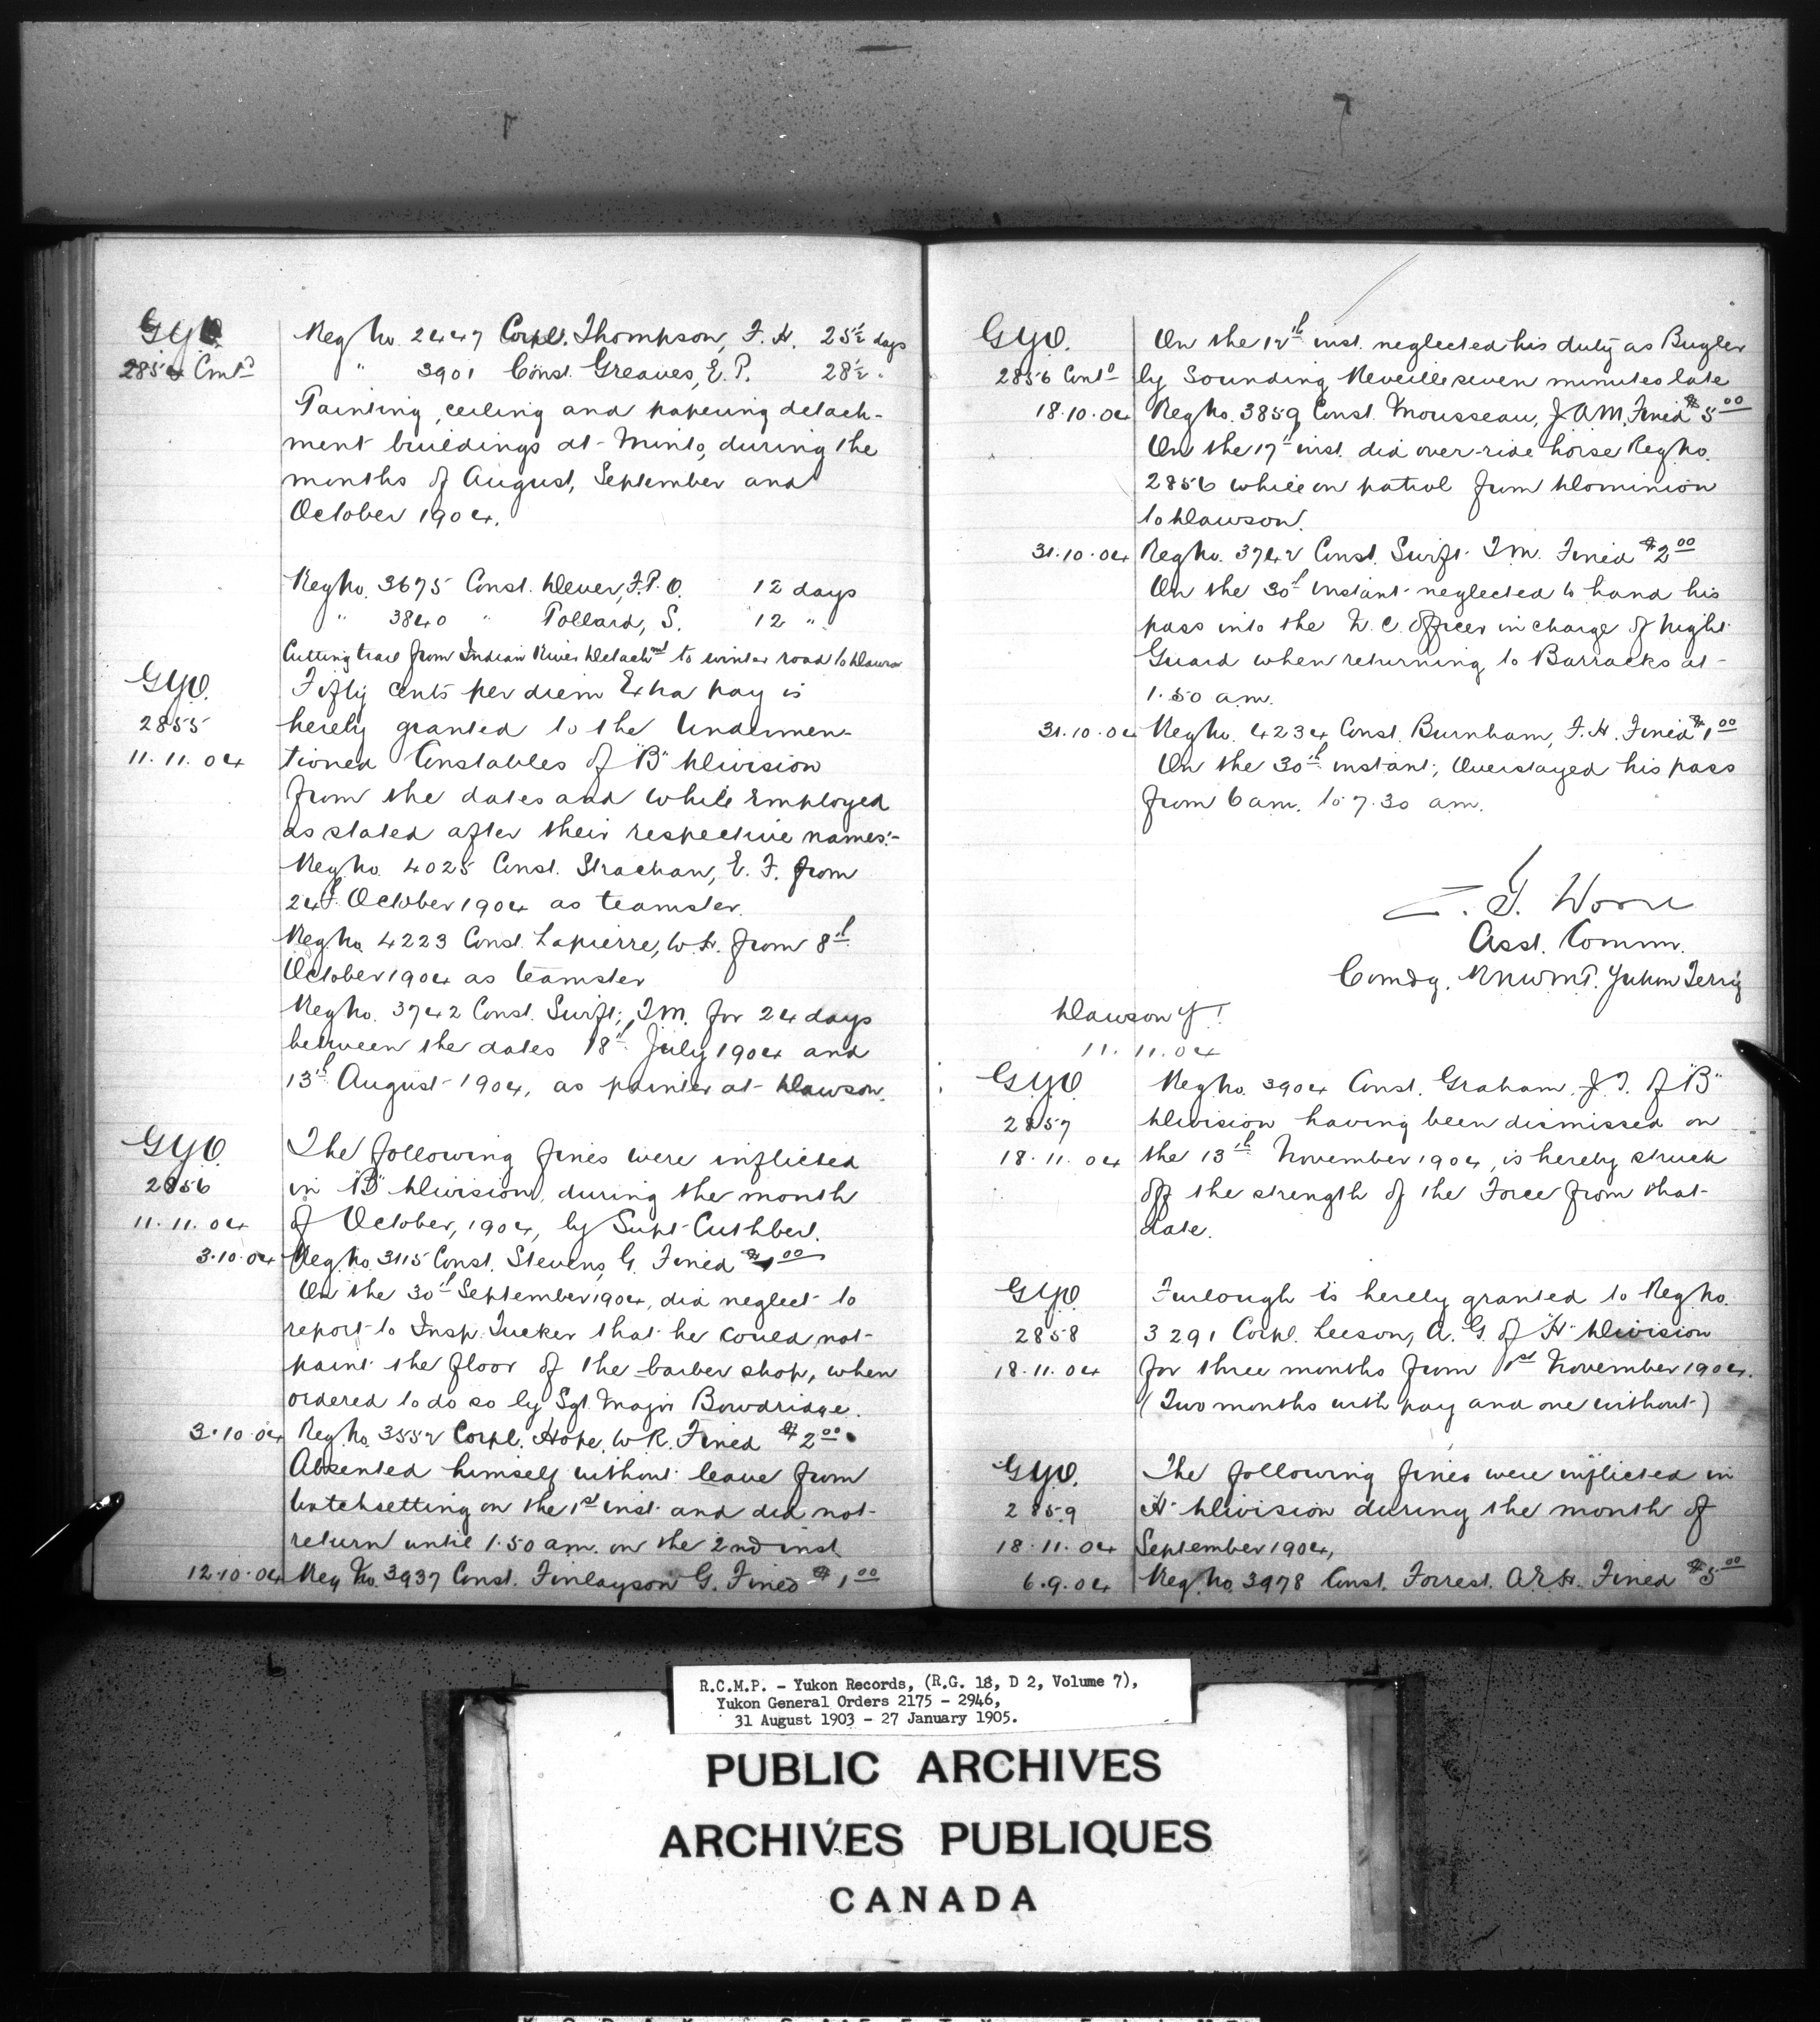 G.Y.O.
2854 Contd
Reg No. 2447 Corpl. Thompson, F. H. 25½ days
" 3901 Const. Greaves, E. P. 28½ "
Painting, ceiling and papering detach-
ment buildings at Minto, during the
months of August, September and
October 1904.
Reg No. 3675 Const. Dever, F. P. O. 12 days
" 3840 " Pollard, S. 12 "
Cutting trail from Indian River Detachmt to winter road to Dawson
G.Y.O.
2855
11.11.04
Fifty cents per diem Extra pay is
hereby granted to the Undermen-
tioned Constables of "B" Division
from the dates and while Employed
as stated after their respective names:-
Reg No. 4025 Const. Strachan, E. F. from
24th October 1904 as teamster.
Reg No. 4223 Const. Lapierre, W. H. from 8th
October 1904 as teamster
Reg No. 3742 Const. Swift, T.M. for 24 days
between the dates 18th July 1904 and
13th August 1904, as painter at Dawson.
G.Y.O.
2856
11.11.04
The following fines were inflicted
in "B" Division, during the month
of October, 1904, by Supt Cuthbert.
3.10.04 Reg. No. 3115 Const. Stevens, G. Fined $1.00
On the 30th September 1904, did neglect to
report to Insp. Tucker that he could not
paint the floor of the barber shop, when
ordered to do so by Sgt. Major Bowdridge.
3.10.04 Reg. No. 3552 Corpl. Hope, W. R. Fined $2.00
Absented himself without leave from
watchsetting on the 1st inst and did not
return until 1.50 am. on the 2nd inst
12.10.04 Reg No. 3937 Const. Finlayson G. Fined $1.00
G.Y.O.
2856 Contd
On the 12th inst. neglected his duty as Bugler
by Sounding Reveille seven minutes late
18.10.04 Reg No. 3859 Const. Mousseau, J.A.M. Fined $5.00
On the 17th inst. did over-ride horse Reg No.
2856 while on patrol from Dominion
to Dawson.
31.10.04 Reg No. 3742 Const. Swift T.M. Fined $2.00
On the 30th instant neglected to hand his
pass into the N. C. Officer in charge of Night
Guard when returning to Barracks at
1.50 am.
31.10.04 Reg No. 4234 Const. Burnham, F. H. Fined $1.00
On the 30th instant, Overstayed his pass
from 6 am. to 7.30 am.
Z. T. Wood
Asst. Commr.
Comdg. RNWMP. Yukon Terrty
Dawson Y.T.
11.11.04
G.Y.O.
2857
18.11.04
Reg No. 3904 Const. Graham, J. T. of "B"
Division having been dismissed on
the 13th November 1904, is hereby struck
off the strength of the Force from that
date.
G.Y.O.
2858
18.11.04
Furlough is hereby granted to Reg No.
3291 Corpl. Leeson, A. G. of "H" Division
for three months from 1st November 1904.
(Two months with pay and one without)
G.Y.O.
2859
18.11.04
The following fines were inflicted in
"H" Division during the month of
September 1904,
6.9.04 Reg. No. 3978 Const. Forrest. A.R.H. Fined $5.00
R.C.M.P. - Yukon Records, (R.G. 18, D 2, Volume 7),
Yukon General Orders 2175 - 2946,
31 August 1903 - 27 January 1905.
PUBLIC ARCHIVES
ARCHIVES PUBLIQUES
CANADA